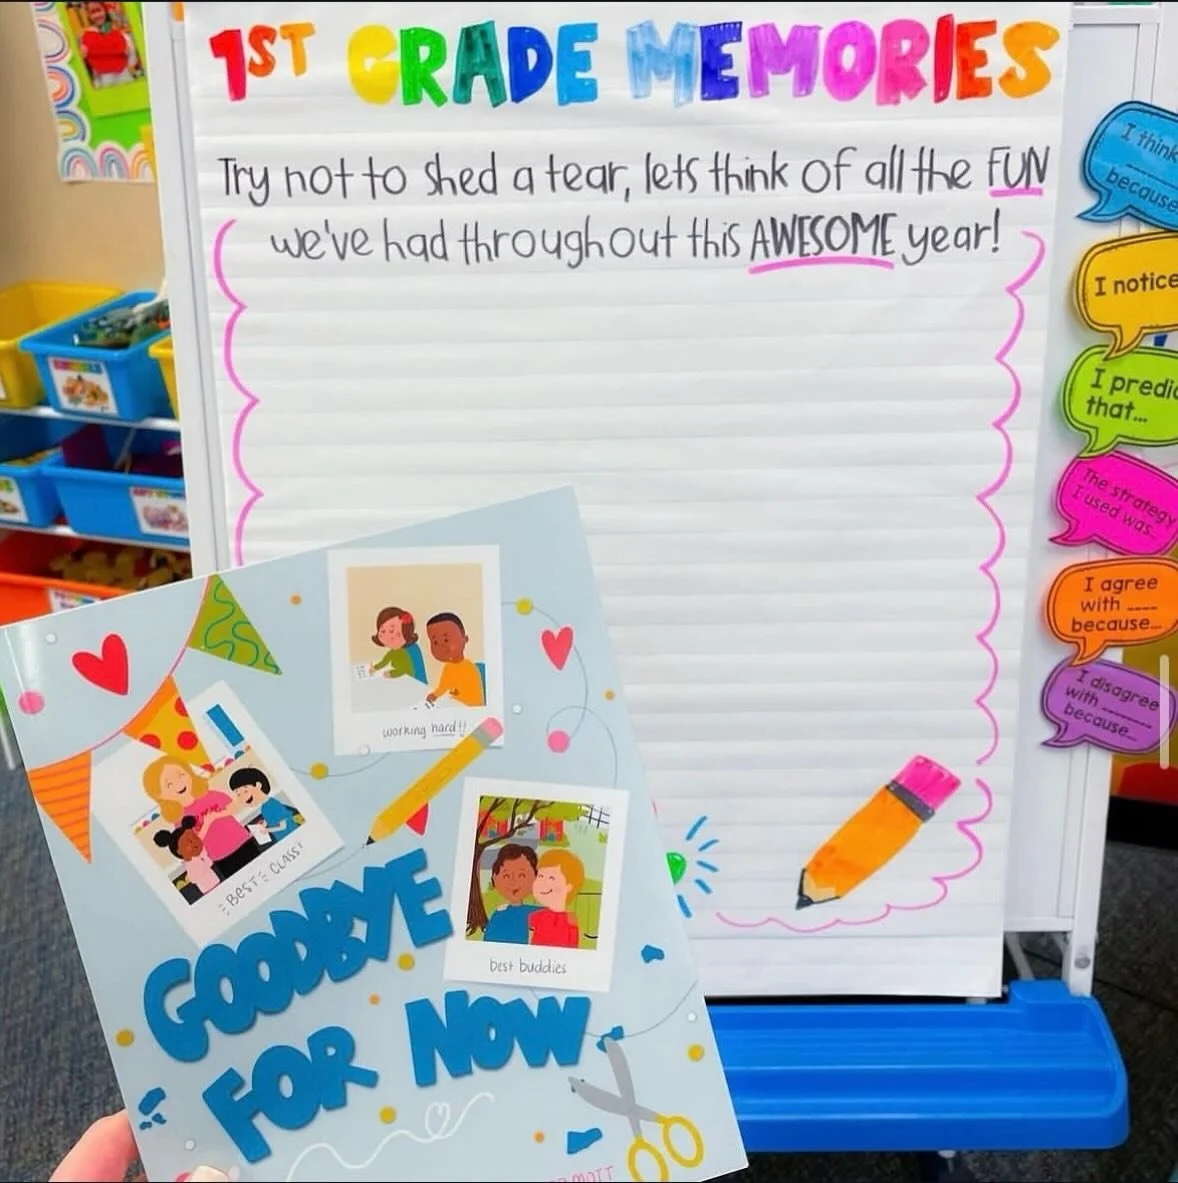 1ST GRADE MEMORIES
Try not to shed a tear, lets think of all the FUN
we've had throughout this AWESOME year!
I think
because
I notice
I predic
that...
The strategy
I used was...
I agree
with ____
because...
I disagree
with ____
because...
working hard!!
BEST CLASS!
best buddies
GOODBYE
FOR NOW